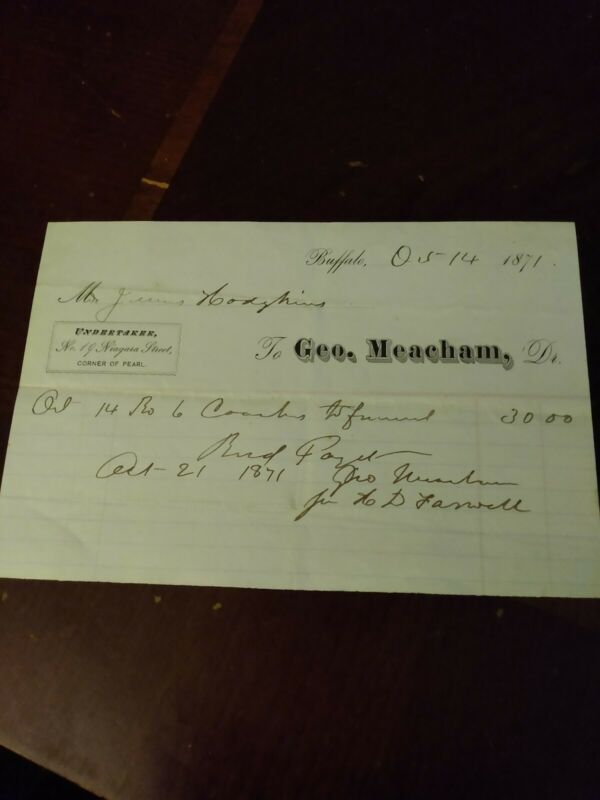 Buffalo, Oct 14 1871.
Mr James Hodgkins
UNDERTAKER,
No. 19 Niagara Street,
CORNER OF PEARL.
To Geo. Meacham, Dr.
Oct 14 To 6 Coaches to funeral 30 00
Recd Payt
Oct 21 1871 Geo Meacham
for H D Farwell